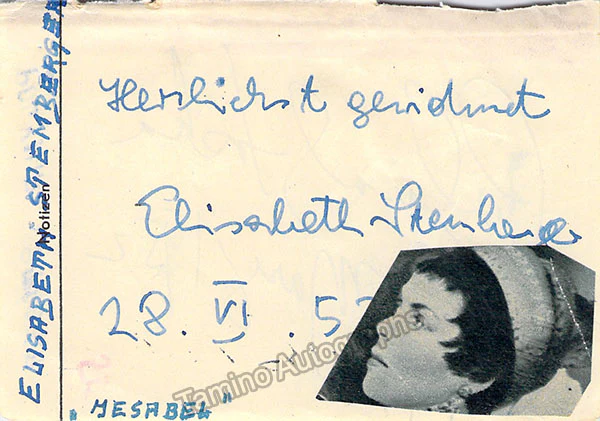 ELISABETH STEMBERGER
Notizen
Herzlichst gewidmet
Elisabeth Stemberger
28. VI. 57
"JESABEL"
Tamino Autographs